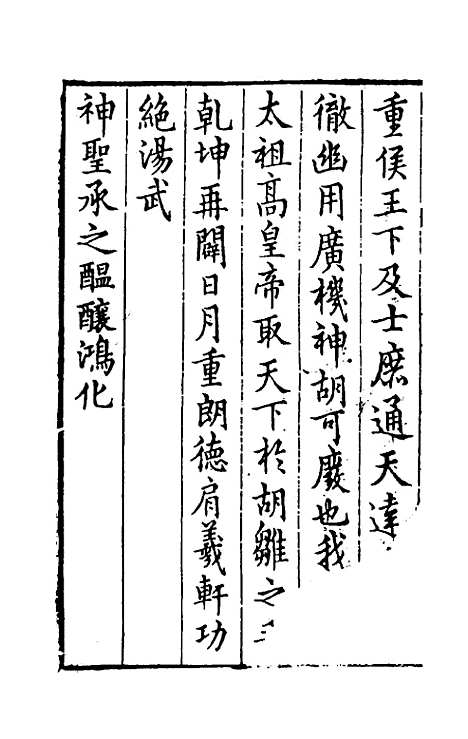 重侯王下及士庶通天達
徹幽用廣機神胡可廢也我
太祖高皇帝取天下於胡雛之
乾坤再闢日月重朗德肩羲軒功
絶湯武
神聖承之醞釀鴻化